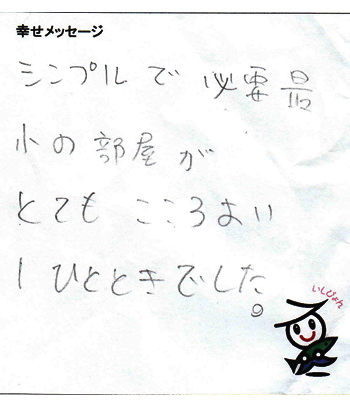 幸せメッセージ
シンプルで必要最
小の部屋が
とても こころよい
1 ひとときでした。
いしぴょん